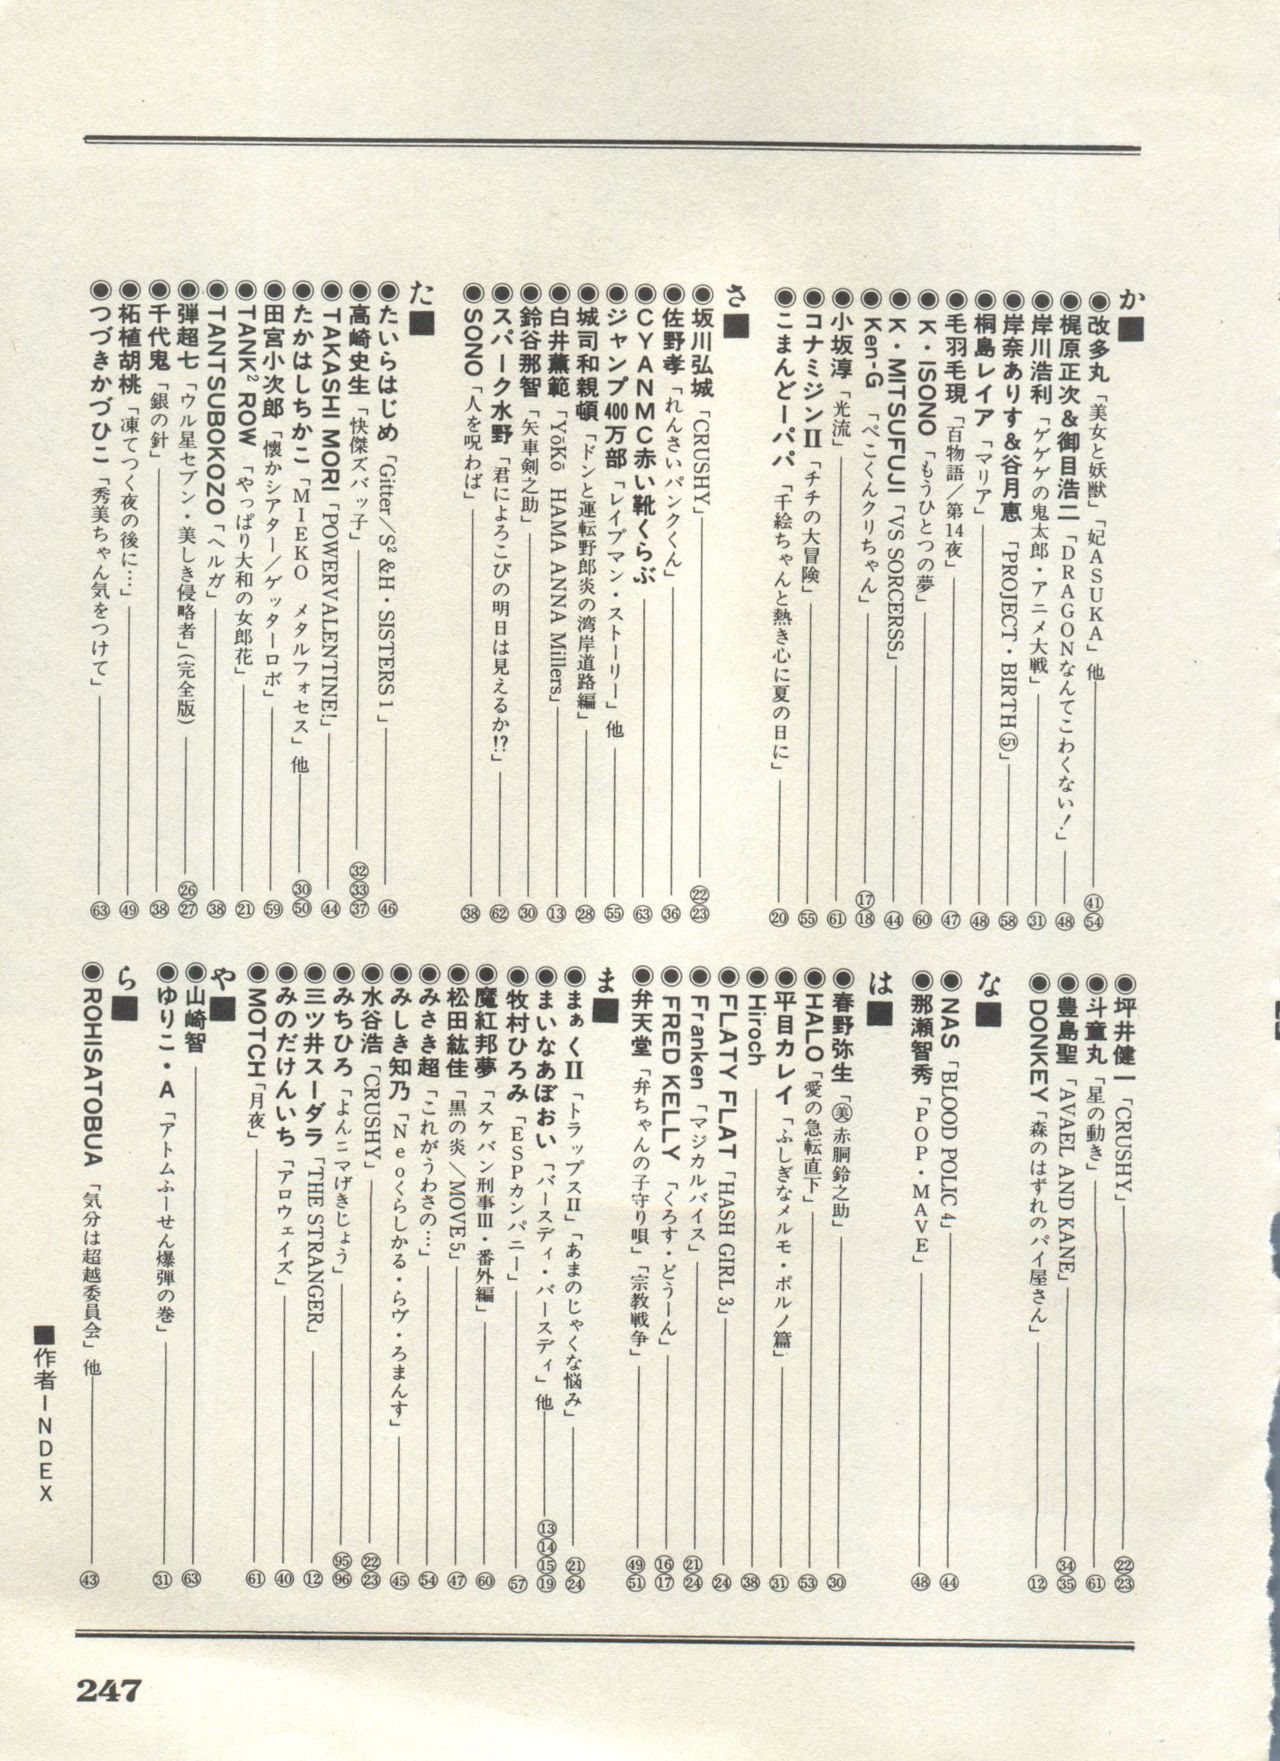 か■
◉改多丸「美女と妖獣」「妃ASUKA」他 ㊶㊾
◉梶原正次&御目浩二「DRAGONなんてこわくない!」 ㊽
◉岸川浩利「ゲゲゲの鬼太郎・アニメ大戦」 ㉛
◉岸奈ありす&谷月恵「PROJECT・BIRTH⑤」 58
◉桐島レイア「マリア」 ㊽
◉毛羽毛現「百物語/第14夜」 ㊼
◉K・ISONO「もうひとつの夢」 60
◉K・MITSUFUJI「VS SORCERSS」 ㊹
◉Ken-G「ぺこくんクリちゃん」 ⑰⑱
◉小坂淳「光流」 61
◉コナミジンII「チチの大冒険」 55
◉こまんどーパパ「千絵ちゃんと熱き心に夏の日に」 ⑳
さ■
◉坂川弘城「CRUSHY」 ㉒㉓
◉佐野孝「れんさいパンクくん」 ㊱
◉CYANMC赤い靴くらぶ 63
◉ジャンプ400万部「レイプマン・ストーリー」他 55
◉城司和親頓「ドンと運転野郎炎の湾岸道路編」 ㉘
◉白井薫範「YōKō HAMA ANNA Millers」 ⑬
◉鈴谷那智「矢車剣之助」 ㉚
◉スパーク水野「君によろこびの明日は見えるか!?」 62
◉SONO「人を呪わば」 ㊳
た■
◉たいらはじめ「Gitter/S²&H・SISTERS 1」 ㊻
◉高崎史生「快傑ズバッ子」 ㉜㉝㊲
◉TAKASHI MORI「POWERVALENTINE!」 ㊹
◉たかはしちかこ「MIEKO メタルフォセス」他 ㉚㊿
◉田宮小次郎「懐かシアター/ゲッターロボ」 59
◉TANK² ROW「やっぱり大和の女郎花」 ㉑
◉TANTSUBOKOZO「ヘルガ」 ㊳
◉弾超七「ウル星セブン・美しき侵略者」(完全版) ㉖㉗
◉千代鬼「銀の針」 ㊳
◉柘植胡桃「凍てつく夜の後に…」 ㊾
◉つづきかづひこ「秀美ちゃん気をつけて」 63
◉坪井健一「CRUSHY」 ㉒㉓
◉斗童丸「星の動き」 61
◉豊島聖「AVAEL AND KANE」 ㉞㉟
◉DONKEY「森のはずれのパイ屋さん」 ⑫
な■
◉NAS「BLOOD POLIC 4」 ㊹
◉那瀬智秀「POP・MAVE」 ㊽
は■
◉春野弥生「㊝赤胴鈴之助」 ㉚
◉HALO「愛の急転直下」 53
◉平目カレイ「ふしぎなメルモ・ポルノ篇」 ㉛
◉Hiroch ㊳
◉FLATY FLAT「HASH GIRL 3」 ㉔
◉Franken「マジカルバイス」 ㉑㉔
◉FRED KELLY「くろす・どうーん」 ⑯⑰
◉弁天堂「弁ちゃんの子守り唄」「宗教戦争」 ㊾51
ま■
◉まぁくII「トラップスII」「あまのじゃくな悩み」 ㉑㉔
◉まいなあぼおい「バースディ・バースディ」他 ⑬⑭⑮⑲
◉牧村ひろみ「ESPカンパニー」 57
◉魔紅邦夢「スケバン刑事III・番外編」 60
◉松田紘佳「黒の炎/MOVE 5」 ㊼
◉みさき超「これがうわさの…」 54
◉みしき知乃「Neoくらしかる・らヴ・ろまんす」 ㊺
◉水谷浩「CRUSHY」 ㉒㉓
◉みちひろ「よんコマげきじょう」 95 96
◉三ツ井スーダラ「THE STRANGER」 ⑫
◉みのだけんいち「アロウェイズ」 ㊵
◉MOTCH「月夜」 61
や■
◉山崎智 63
◉ゆりこ・A「アトムふーせん爆弾の巻」 ㉛
ら■
◉ROHISATOBUA「気分は超越委員会」他 ㊸
■作者-INDEX
247